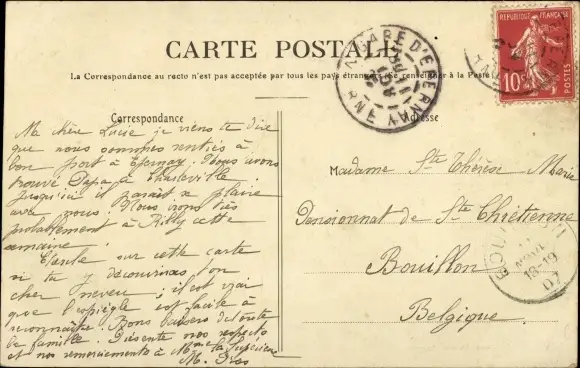 CARTE POSTALE
La Correspondance au recto n'est pas acceptée par tous les pays étrangers (Se renseigner à la Poste)
Correspondance
Ma chère Lucie je viens te dire
que nous sommes rentrés à
bon port à Epernay. Nous avons
trouvé Papa à Charleville
jusqu'ici il parait se plaire
avec nous. Nous irons très
probablement à Rilly cette
semaine.
sur cette carte
si tu y découvriras ton
cher neveu; il est vrai
que l'espiègle est facile à
reconnaître. Bons baisers de toute
la famille. Présente nos respects
et nos remerciements à Mme la Supérieure
M.
Adresse
Madame Ste Thérèse Marie
Pensionnat de Ste Chrétienne
Bouillon
Belgique.
REPUBLIQUE FRANÇAISE
10c
POSTES
GARE D'EPERNAY
MARNE
BOUILLON
18-19
07